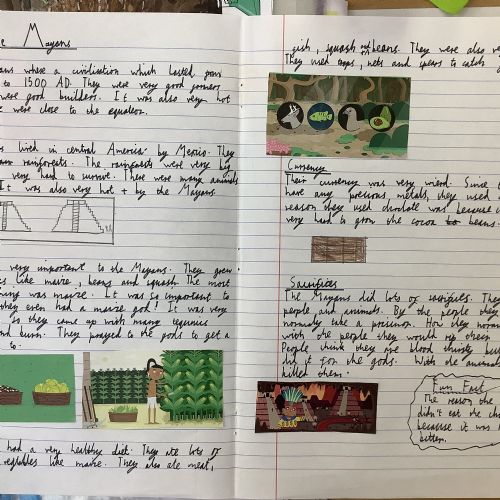 e Mayans
ans where a civilisation which lasted from
to 1500 AD. They were very good farmers
were good builders. It was also very hot
e were close to the equator.
s lived in central America by Mexico. They
rainforests. The rainforests were very big
very hard to survive. There were many animals
It was also very hot + by the Mayans.
very important to the Mayans. They grew
s like maize, beans and squash. The most
hing was maize. It was so important to
they even had a maize god! It was very
so they came up with many
and burn. They prayed to the gods to get a
to.
had a very healthy diet. They ate lots of
vegetables like maize. They also ate meat,
fish, squash and beans. They were also ve
They used traps, nets and spears to catch
Currency
Their currency was very wierd. Since
have any precious metals, they used
reason they used chocolate was because
very hard to grow the cocoa beans.
Sacrifices
The Mayans did lots of sacrifices. The
people and animals. By the people they
normaly take a prisoner. How they norma
with the people they would rip
People think they are blood thirsty but
did it for the gods. With the animals
killed them.
Fun Fact
The reason the
didn't eat the cho
because it was
bitter.